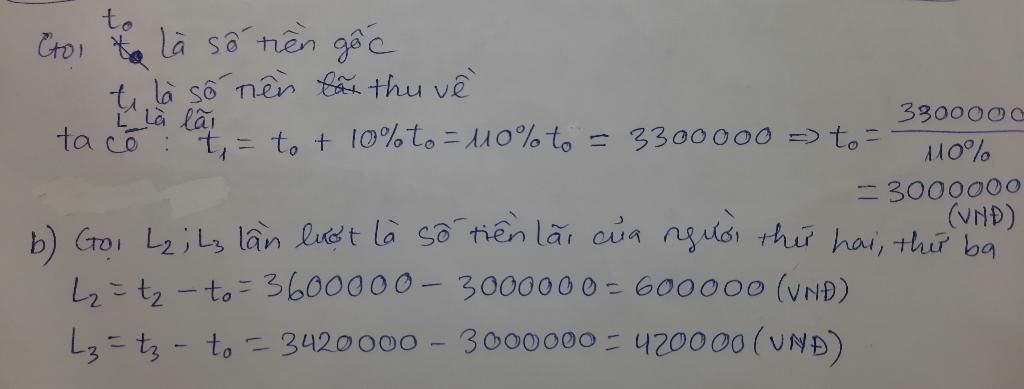 t₀
Gọi t₀ là số tiền gốc
t₁ là số tiền lãi thu về
L là lãi
ta có : t₁ = t₀ + 10%t₀ = 110%t₀ = 3300000 => t₀ = 3300000 / 110%
= 3000000
(VNĐ)
b) Gọi L₂ ; L₃ lần lượt là số tiền lãi của người thứ hai, thứ ba
L₂ = t₂ - t₀ = 3600000 - 3000000 = 600000 (VNĐ)
L₃ = t₃ - t₀ = 3420000 - 3000000 = 420000 (VNĐ)